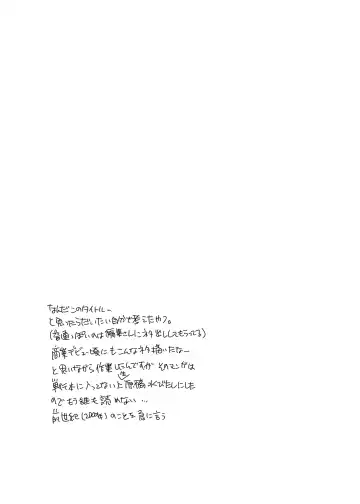 なんだこのタイトル…
と思ったらだいたい自分で考えたやつ。
(普通っぽいのは編集さんにネタ出ししてもらってる)
商業デビュー頃にもこんなネタ描いたなー
と思いながら作業してたんですが そのマンガは
単行本に入ってない上 原稿水びたしにした
のでもう誰も読めない…
前世紀(2000年)のことを急に言う